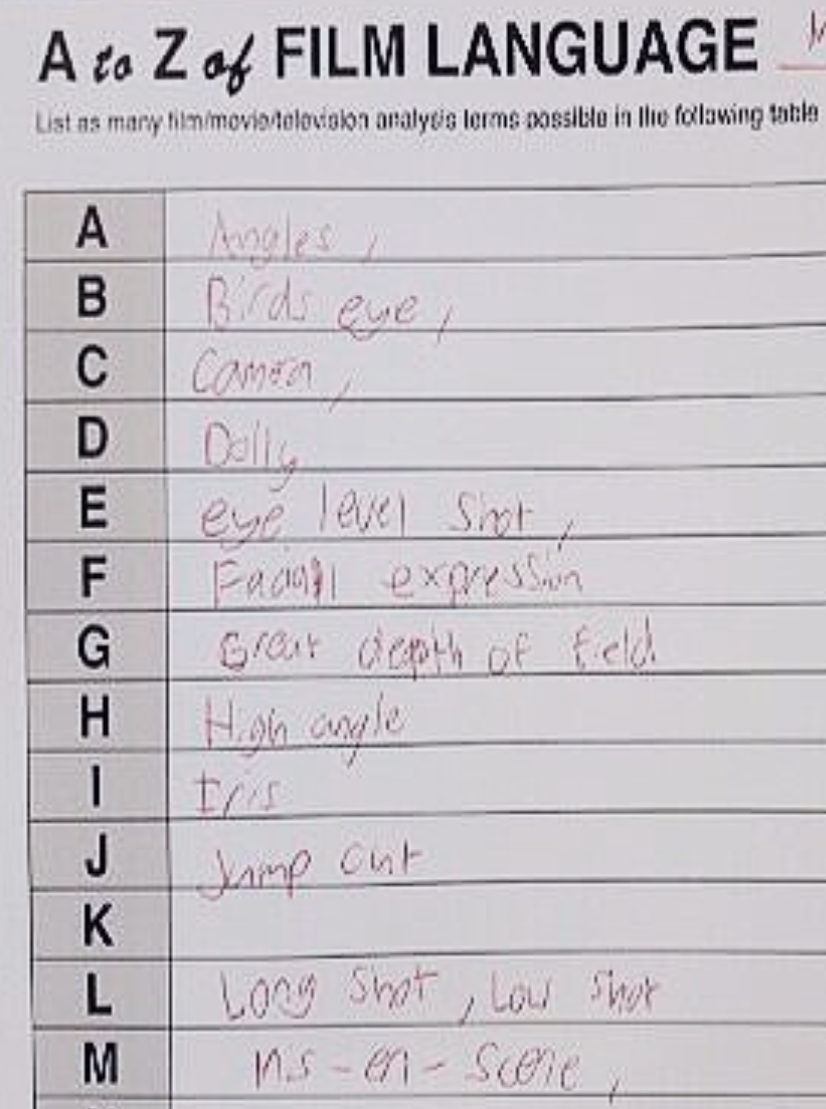 A to Z of FILM LANGUAGE
List as many film/movie/television analysis terms possible in the following table
A Angles,
B Birds eye,
C Camera,
D Dolly
E eye level shot,
F Facial expression
G Great depth of field
H High angle
I Iris
J Jump cut
K
L Long shot, Low shot
M mis-en-scene,